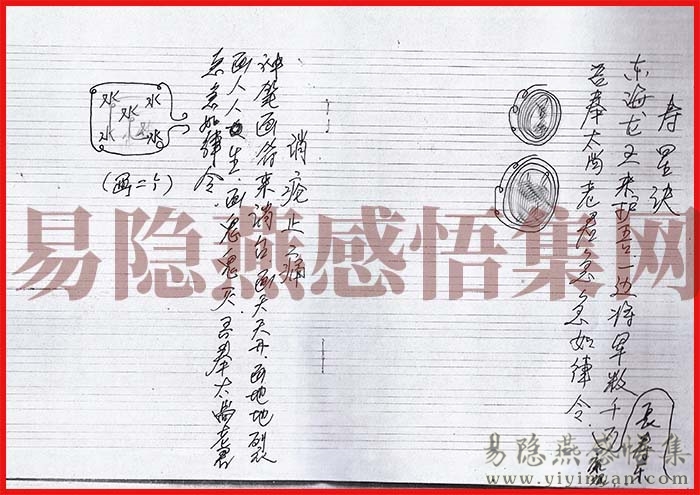 寿星诀
东海龙王来护吾一边将军数千万
吾奉太尚老君急急如律令
长寿
消疮止痛
神笔画符来消台画天天开画地地裂
画人人生画鬼鬼灭吾奉太尚老君
急急如律令
水 水
水
水 水
(画二个)
易隐燕感悟集网
易隐燕感悟集
www.yiyinyan.com